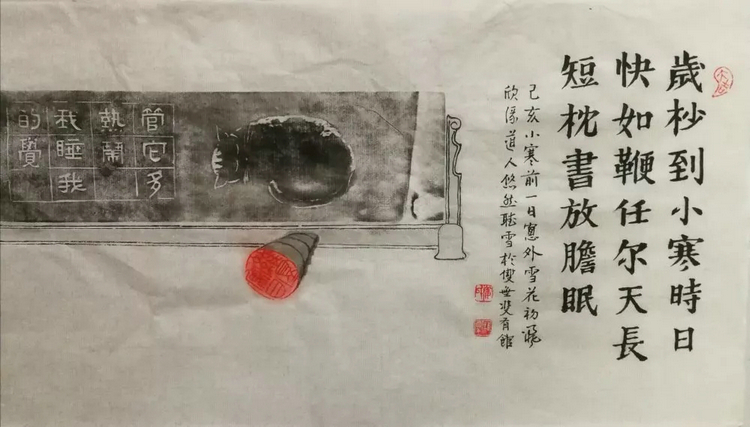 歲杪到小寒時日
快如鞭任尔天長
短枕書放膽眠
己亥小寒前一日窓外雪花初飛
欣道人悠然聴雪於館
管它多
熱鬧
我睡我
的覺